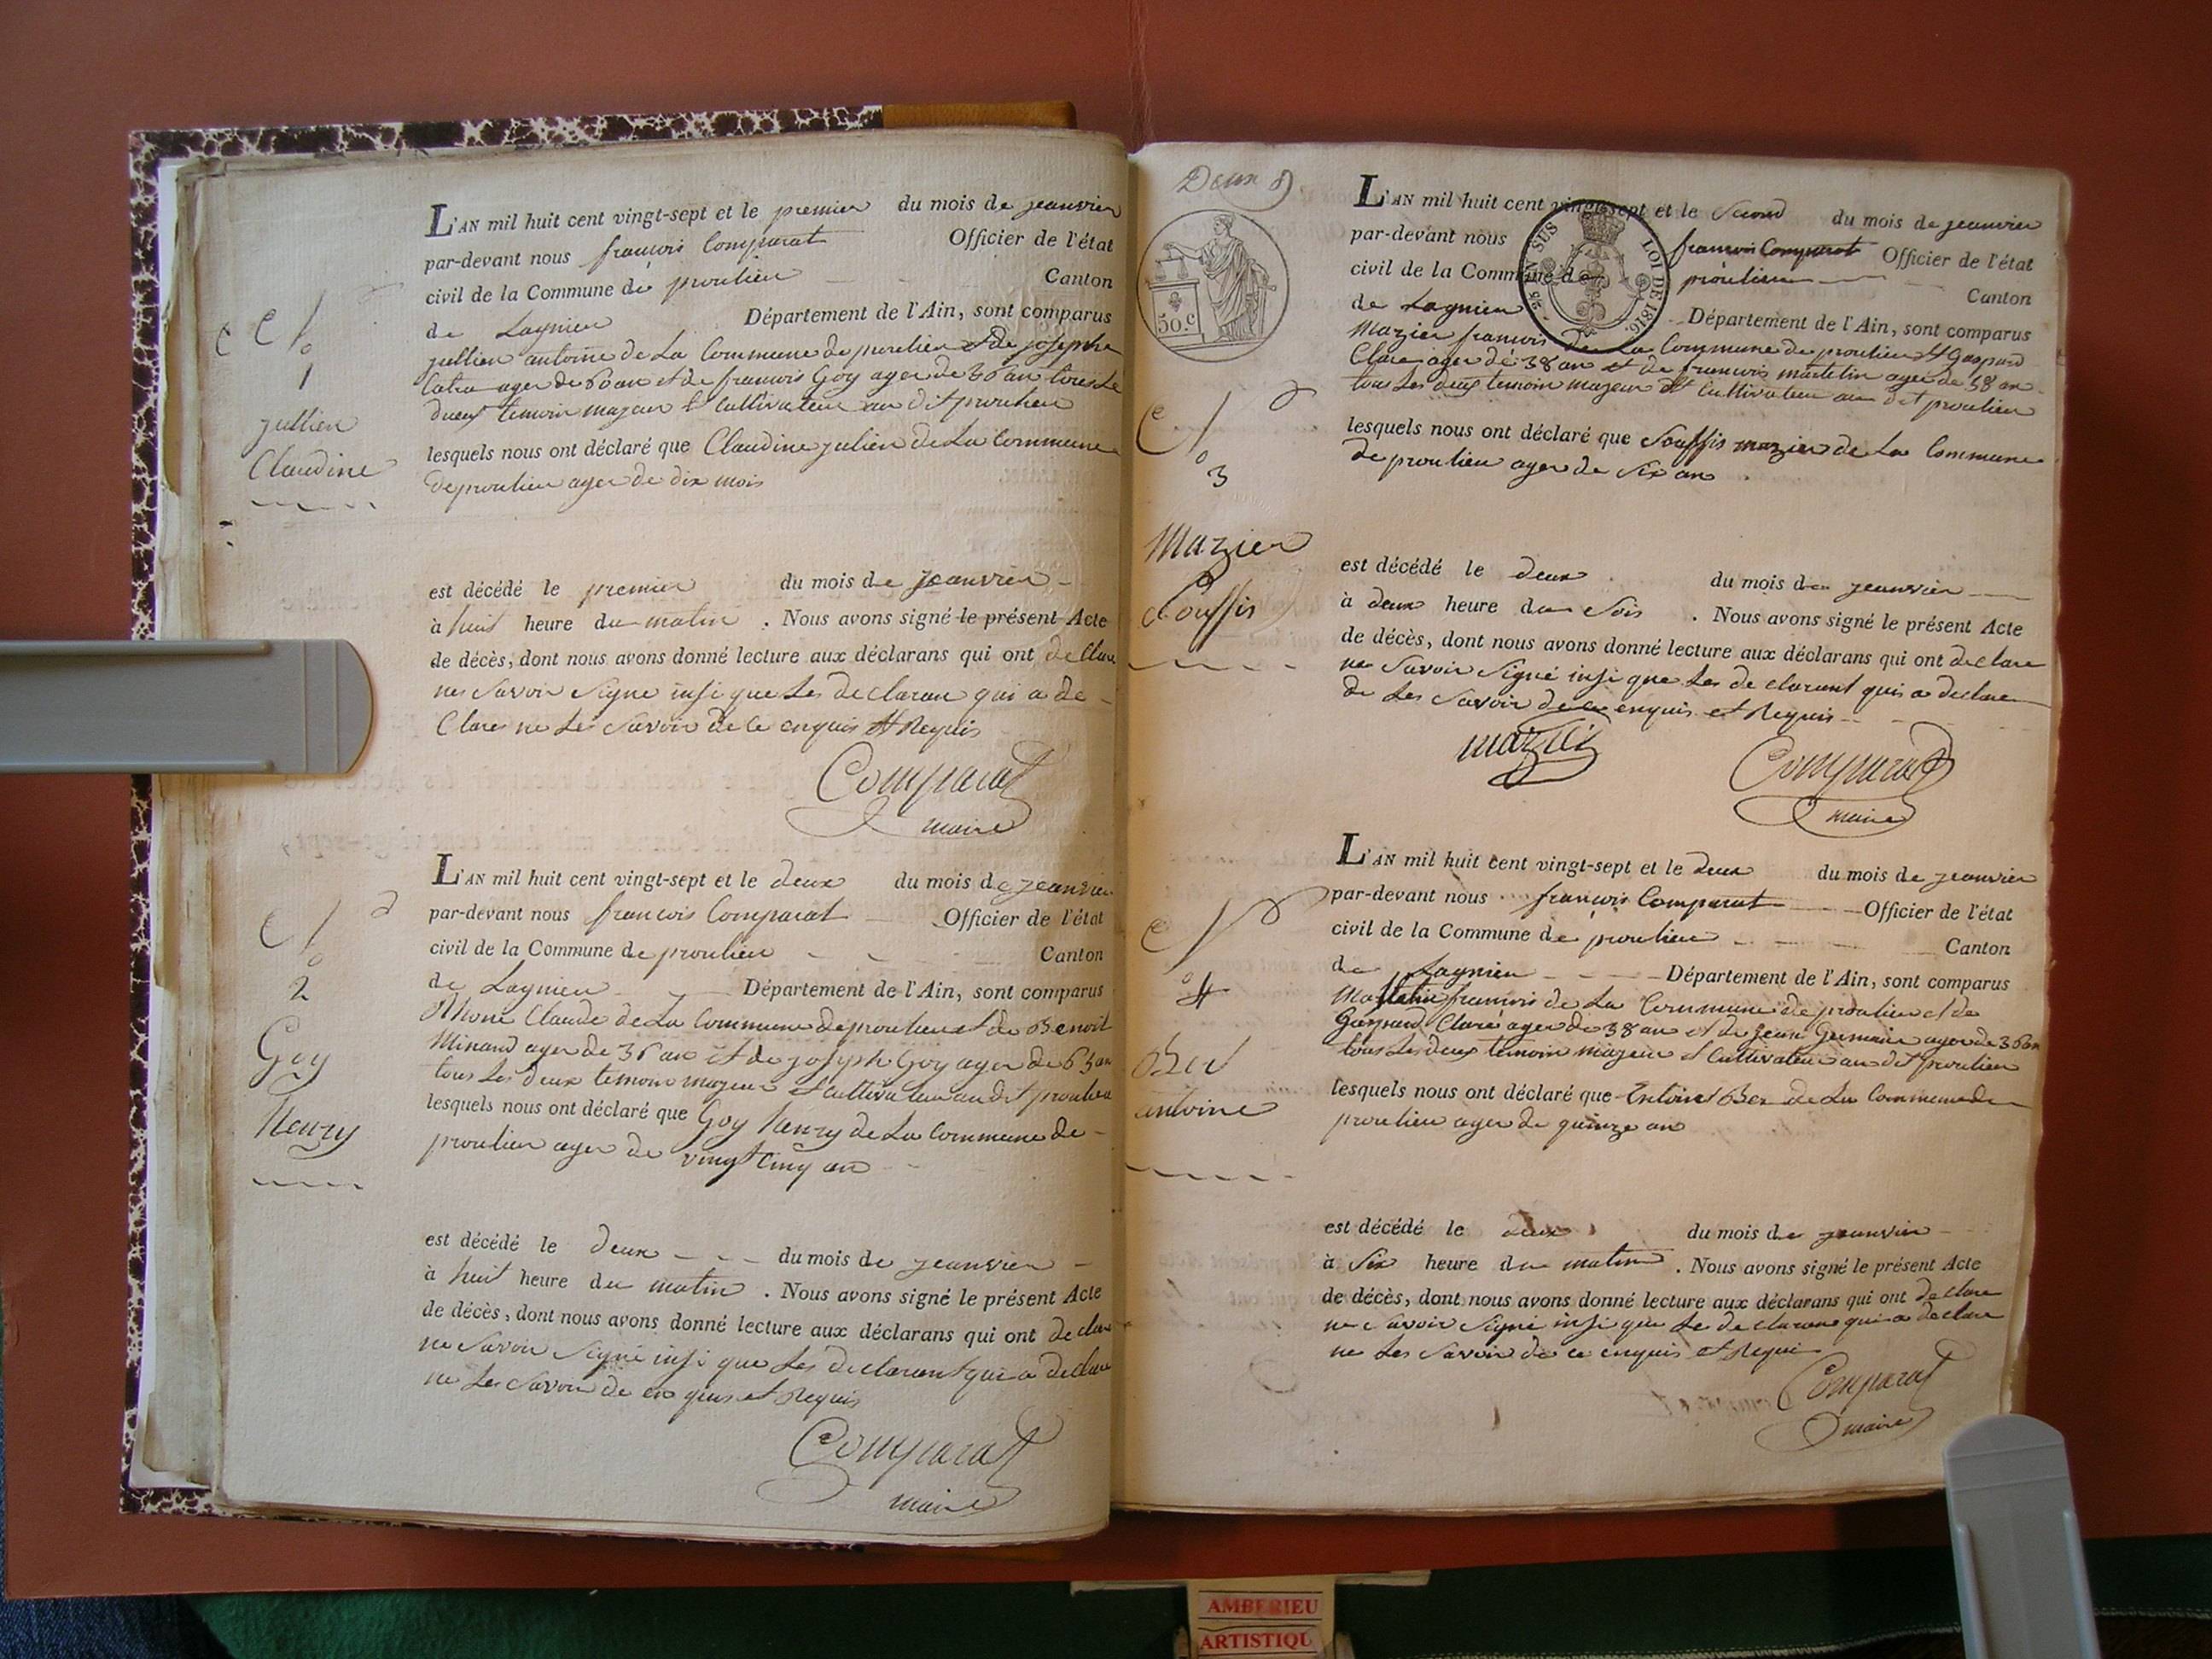 L'AN mil huit cent vingt-sept et le premier du mois de jeanvier
par-devant nous francois Comparat Officier de l'état
civil de la Commune de proulieu Canton
de Lagnieu Département de l'Ain, sont comparus
jullien antoine de La Commune de proulieu et de josephe
ager de 60 an et de francois Goy ager de 36 an tous Le
deux temoin majeur et Cultivateur au dit proulieu
lesquels nous ont déclaré que Claudine julien de La Commune
de proulieu ager de dix mois
est décédé le premier du mois de jeanvier
à huit heure du matin . Nous avons signé le présent Acte
de décès, dont nous avons donné lecture aux déclarans qui ont declare
ne Savoir Signe insi que Les declaran qui a de-
Clare ne Les Savoir de Ce enquis et Requis
Comparat
maire
1
jullien
Claudine
L'AN mil huit cent vingt-sept et le deux du mois de jeanvier
par-devant nous francois Comparat Officier de l'état
civil de la Commune de proulieu Canton
de Lagnieu Département de l'Ain, sont comparus
Claude de La Commune de proulieu et de Benoit
Minand ager de 36 an et de joseph Goy ager de 63 an
tous Les deux temoin majeur et Cultivateur au dit proulieu
lesquels nous ont déclaré que Goy henry de La Commune de
proulieu ager de vingt Cinq an
est décédé le deux du mois de jeanvier
à huit heure du matin . Nous avons signé le présent Acte
de décès, dont nous avons donné lecture aux déclarans qui ont declare
ne Savoir Signé insi que Les declarant qui a declare
ne Les Savoir de en quis et Requis
Comparat
maire
2
Goy
henry
Deux
50.C
EN SUS
LOI DE 1816
L'AN mil huit cent vingt-sept et le Second du mois de jeanvier
par-devant nous francois Comparat Officier de l'état
civil de la Commune de proulieu Canton
de Lagnieu Département de l'Ain, sont comparus
Mazier francois de La Commune de proulieu et Gaspard
Clare ager de 38 an et de francois matelin ager de 38 an
tous Les deux temoin majeur et Cultivateur au dit proulieu
lesquels nous ont déclaré que Souffis mazier de La Commune
de proulieu ager de Six an
est décédé le deux du mois de jeanvier
à deux heure du Soir . Nous avons signé le présent Acte
de décès, dont nous avons donné lecture aux déclarans qui ont declare
ne Savoir Signé insi que Les declarant qui a declare
de Les Savoir de Ce enquis et Requis
mazier
Comparat
maire
3
Mazier
Souffis
L'AN mil huit cent vingt-sept et le deux du mois de jeanvier
par-devant nous francois Comparat Officier de l'état
civil de la Commune de proulieu Canton
de Lagnieu Département de l'Ain, sont comparus
francois de La Commune de proulieu et de
Gaspard Claré ager de 38 an et de jean Germain ager de 36 an
tous Les deux temoin majeur et Cultivateur au dit proulieu
lesquels nous ont déclaré que Entoine Ber de La Commune de
proulieu ager de quinze an
est décédé le deux du mois de jeanvier
à Six heure du matin . Nous avons signé le présent Acte
de décès, dont nous avons donné lecture aux déclarans qui ont declare
ne Savoir Signé insi que Le declaran qui a declare
ne Les Savoir de ce enquis et Requi
Comparat
maire
4
Ber
antoine
AMBERIEU
ARTISTIQU